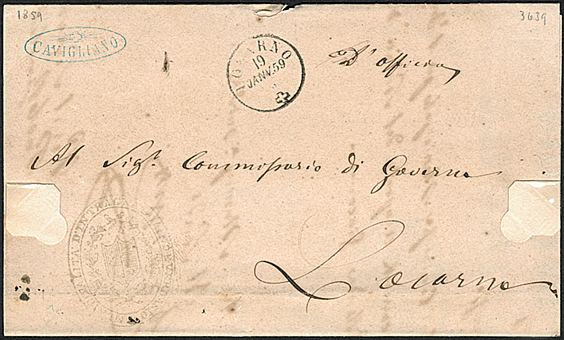 1859
3639
CAVIGLIANO
LOCARNO
19
JANV. 59
D'officio
Al Sigr. Commissario di Governo
Locarno